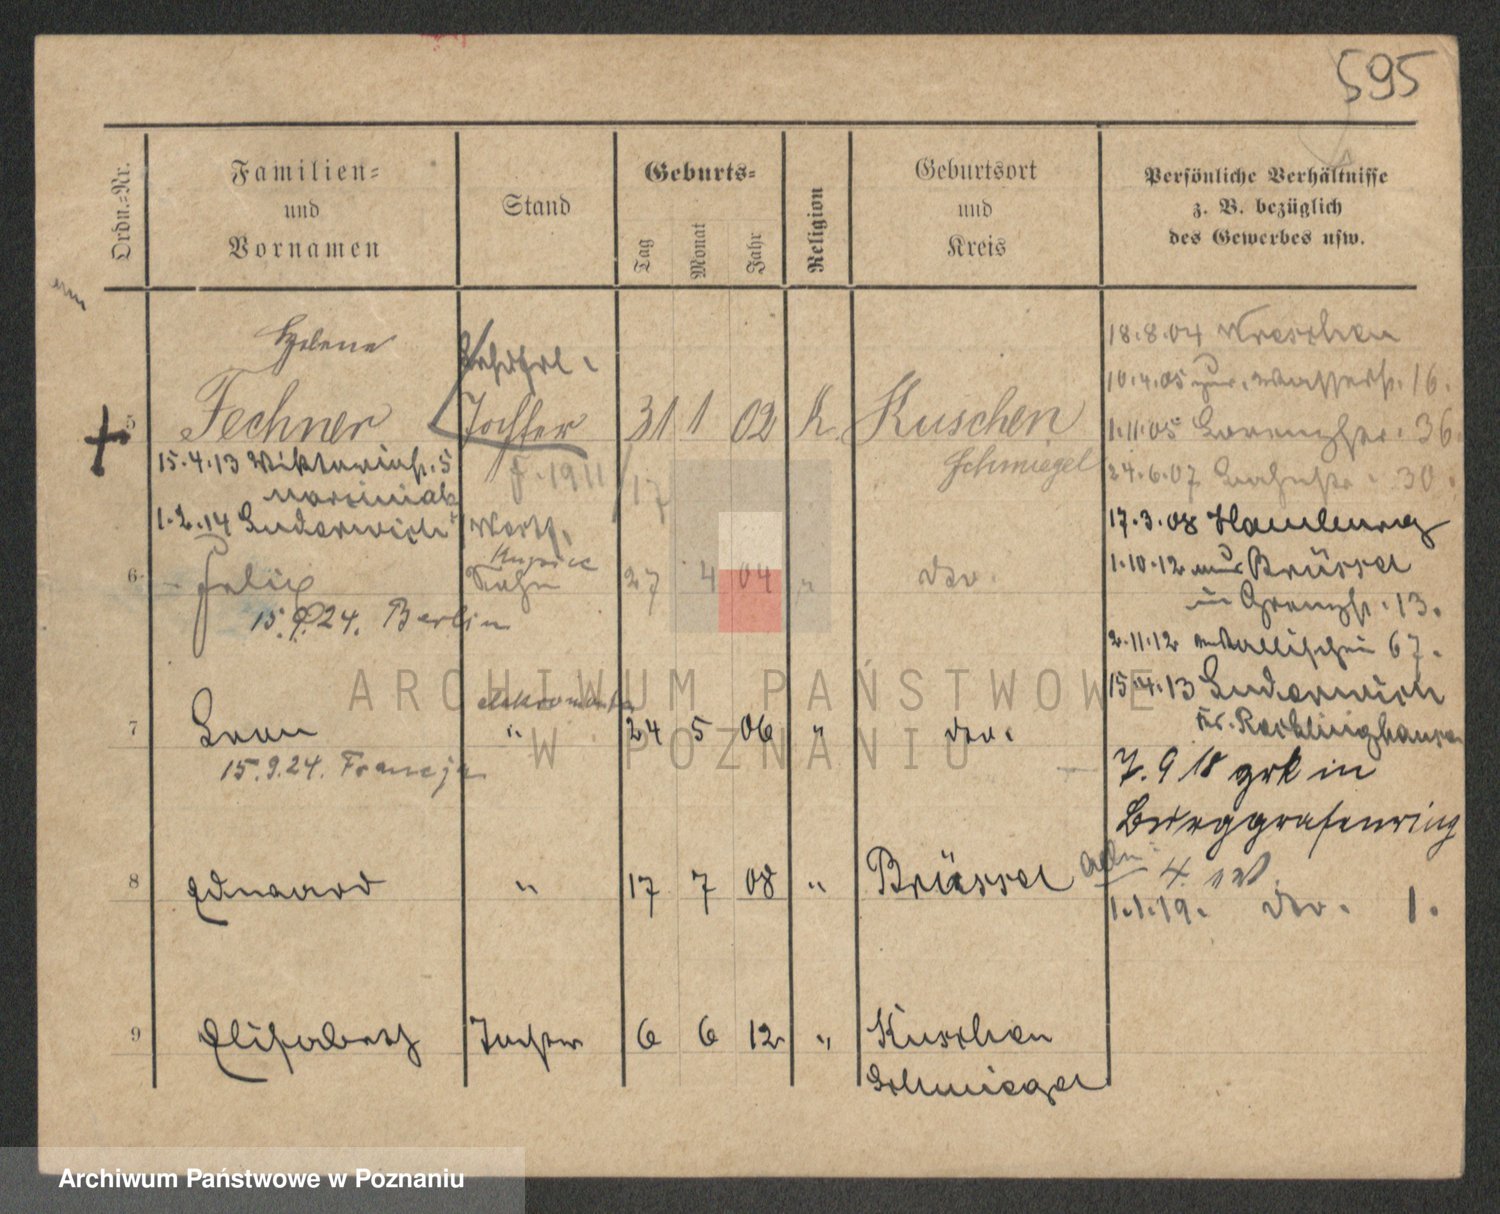 595
Ordn.-Nr.
Familien-
und
Vornamen
Stand
Geburts-
Tag
Monat
Jahr
Religion
Geburtsort
und
Kreis
Persönliche Verhältnisse
z. B. bezüglich
des Gewerbes usw.
Helene
5
Fechner
Tochter
31 1 02
K.
Kuschen
Schmiegel
15.4.13 Viktoriastr. 5
1.2.14 Suderwich
6
Felix
Sohn
27 4 04
"
do.
15.9.24. Berlin
7
Leon
"
24 5 06
"
do.
15.9.24. Francja
8
Eduard
"
17 7 08
"
Brüssel
9
Elisabeth
Tochter
6 6 12
"
Kuschen
Schmiegel
18.8.04 Wreschen
10.4.05 zur. Wasserstr. 16.
1.11.05 Lorenzstr. 36.
24.6.07 30.
17.3.08 Hamburg
1.10.12 aus Brüssel
in Grenzstr. 13.
2.11.12 Wallischei 67.
15.4.13 Suderwich
Kr. Recklinghausen
7.9 18 zrk in
Burggrafenring
4.
1.1.19. do. 1.
ARCHIWUM PAŃSTWOWE
W POZNANIU
Archiwum Państwowe w Poznaniu